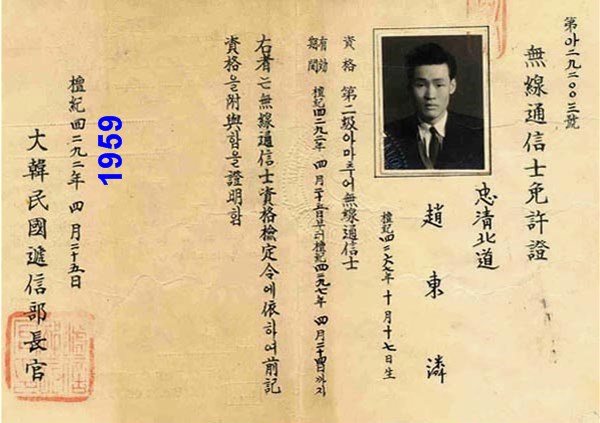 第아二九二00三號
無線通信士免許證
忠淸北道
趙東濟
檀紀四二六七年 十月十七日生
資格 第二級아마추어無線通信士
有効期間 檀紀四二九二年 四月二十五日부터檀紀四二九七年 四月二十四日까지
右者는無線通信士資格檢定令에依하여前記
資格을附與함을證明함
檀紀四二九二年 四月二十五日
1959
大韓民國遞信部長官